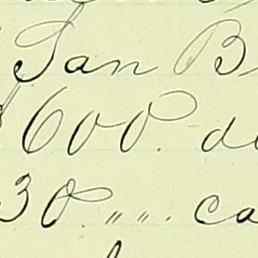 San B
600. d
30. " " . ca